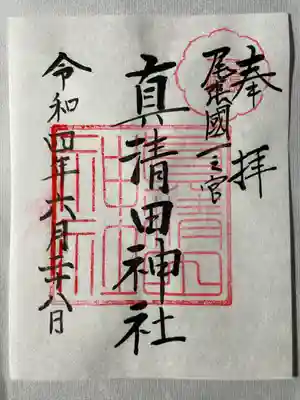 奉拝
尾張國一之宮
真清田神社
令和四年六月二十八日